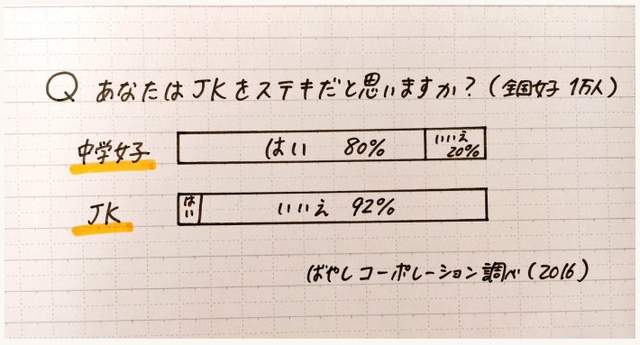 Q あなたはJKをステキだと思いますか？(全国女子 1万人)
中学女子 はい 80% いいえ 20%
JK はい いいえ 92%
ばやしコーポレーション調べ(2016)